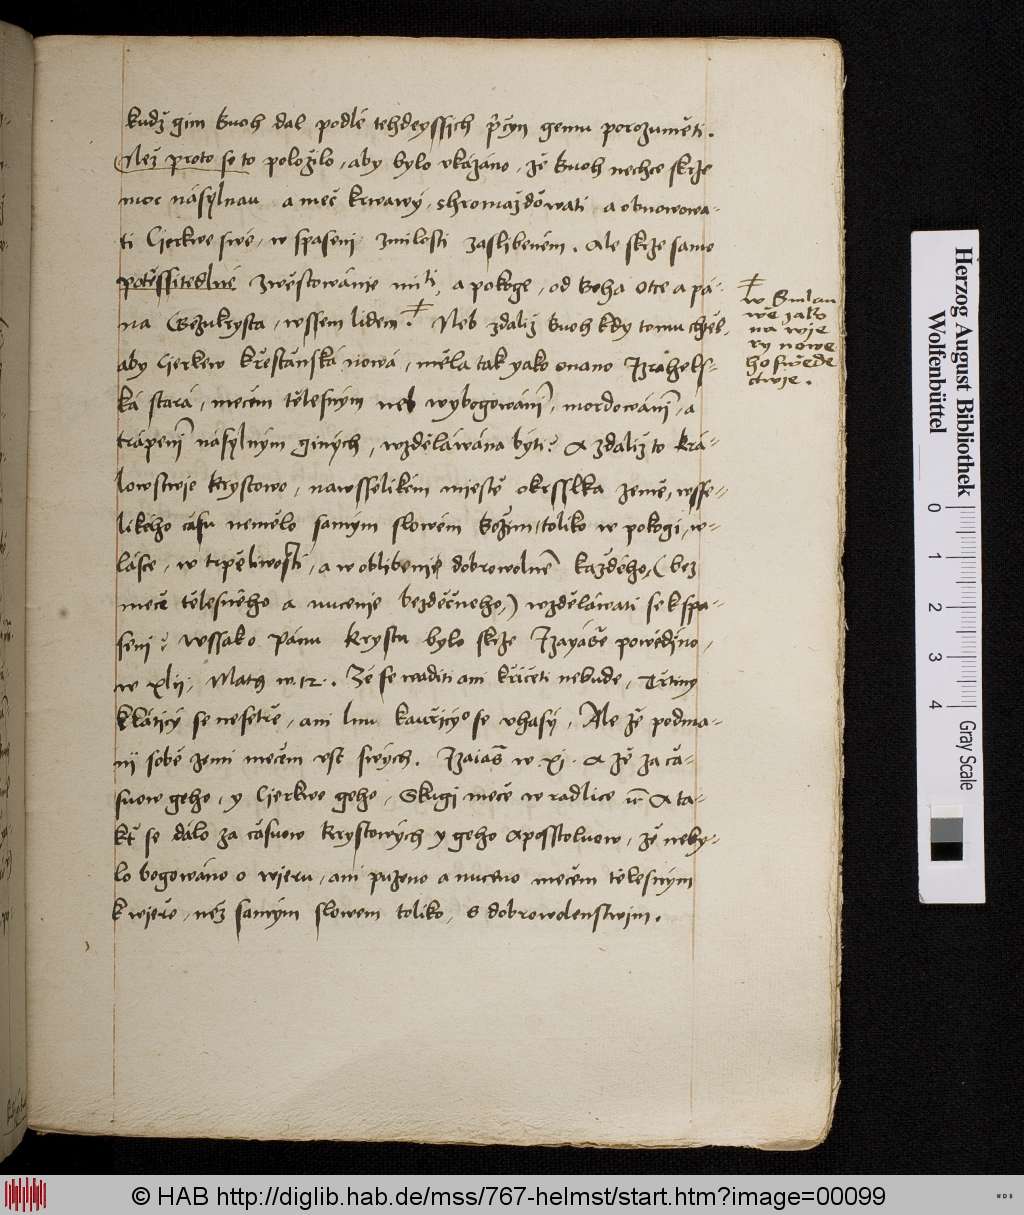 kudž gim Buoh dal podlé tehdeyssich přčyn gemu porozuměti.
Než proto se to položilo, aby bylo vkázáno, že Buoh nechce skrze
moc násylnau a meč krwawý, shromažďowati a obnowowa-
ti Cjerkwe swé, w spasení zmilosti zaslíbeném. Ale skrze samo
potěssitedlné zwěstowánie mti, a pokoge, od Boha Otce a pá-
na Gežukrysta, wssem lidem. Neb zdaliž Buoh kdy tomu chtěl,
aby Cjerkew křestianská nowá, měla tak yako onano Izrahels-
ká stará, mečem tělesným neb wybogowáním, mordowáním, a
trápením násylným giných, wzdělawána býti? A zdaliž to krá-
lowstwie Krystowo, nawsselikém miestě okrsslka země, wsse-
likého času nemělo samým slowem Božím, toliko w pokogi, w-
lásce, w trpěliwosti, a w oblibenie dobrowolné každého, (bez
meče tělesného a nucenie bezděčneho,) wzdělawati se k spa-
sení? Wssako Pánu Krystu bylo skrze Izayáše powědíno,
w xlii, Math w 12. Že se waditi ani křičeti nebude, Trtiny
klátící se nesetře, ani lnu kauřicýo se vhasý, Ale že podma-
ní sobě zemi mečem vst swých. Izaiáš w xi. A že za ča-
suow geho, y Cjerkwe geho, Skugi meče w radlice &c A ta-
kť se dálo za časuow Krystowých y geho Aposstoluow, že neby-
lo bogowáno o wjeru, ani puzeno a nuceno mečem tělesným
k wjeře, než samým slowem toliko, s dobrowolenstwim.
w Smlau
wě jako
na wje
ry nowe
ho swěde
ctwie.
Herzog August Bibliothek
Wolfenbüttel
0 1 2 3 4
Gray Scale
© HAB http://diglib.hab.de/mss/767-helmst/start.htm?image=00099
WDB